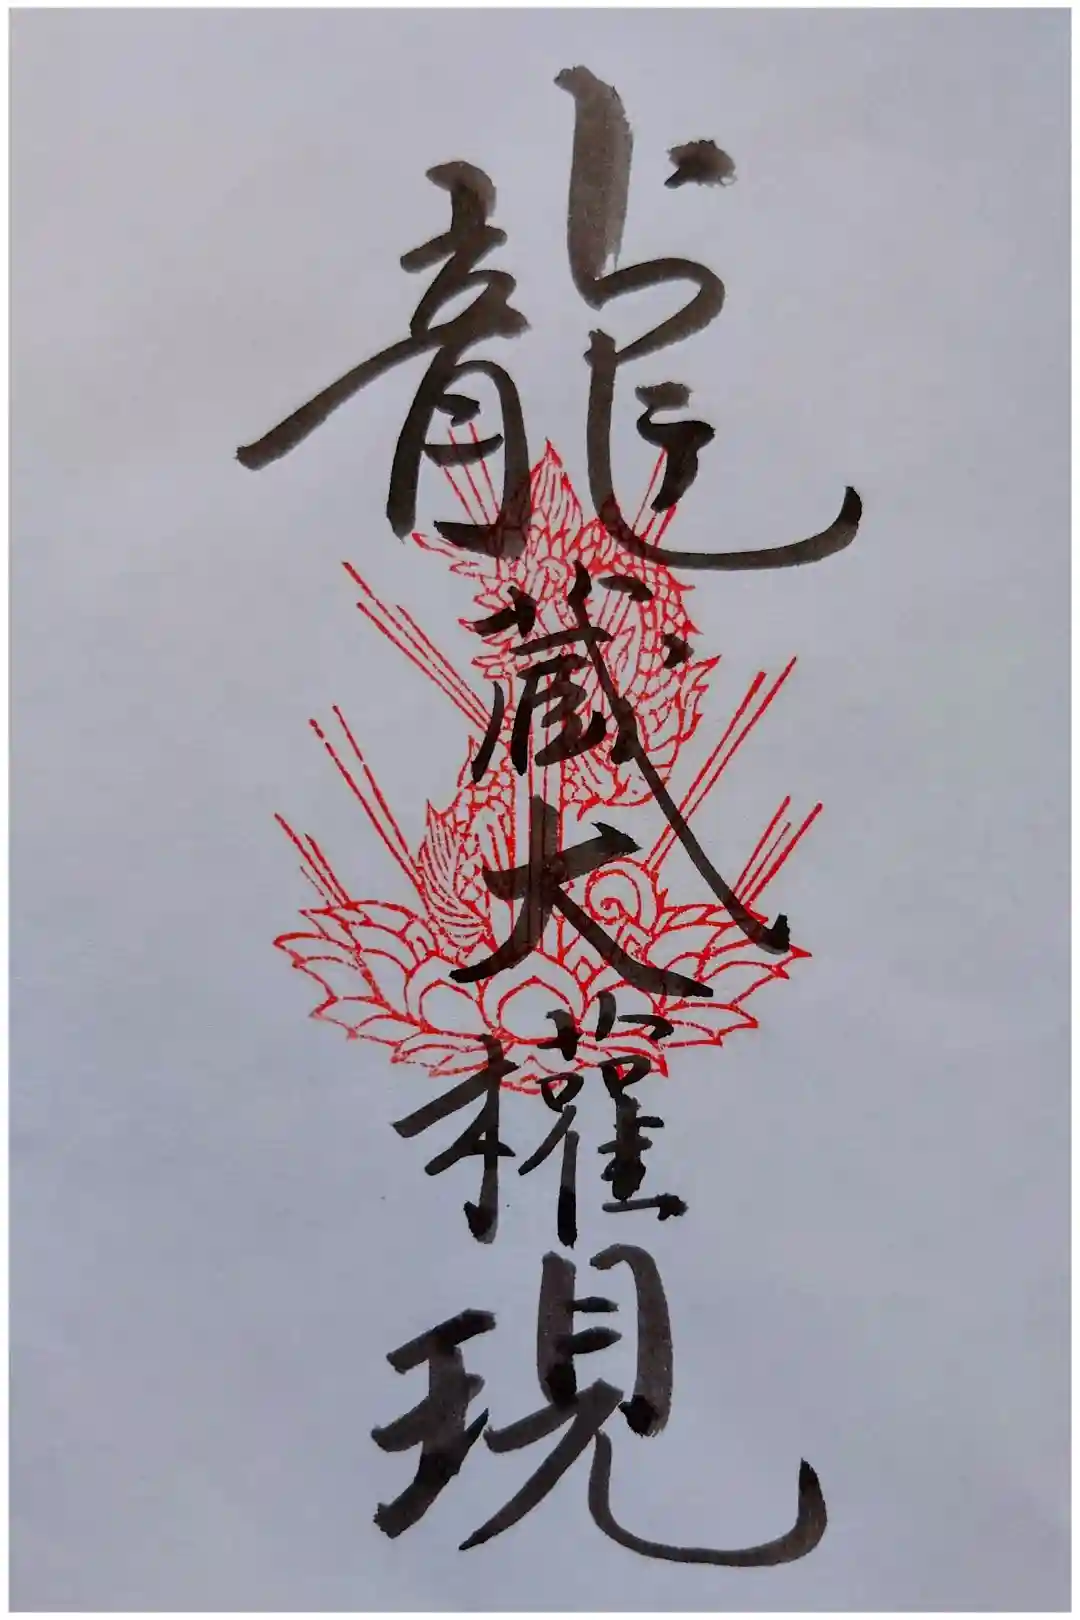 龍蔵大権現